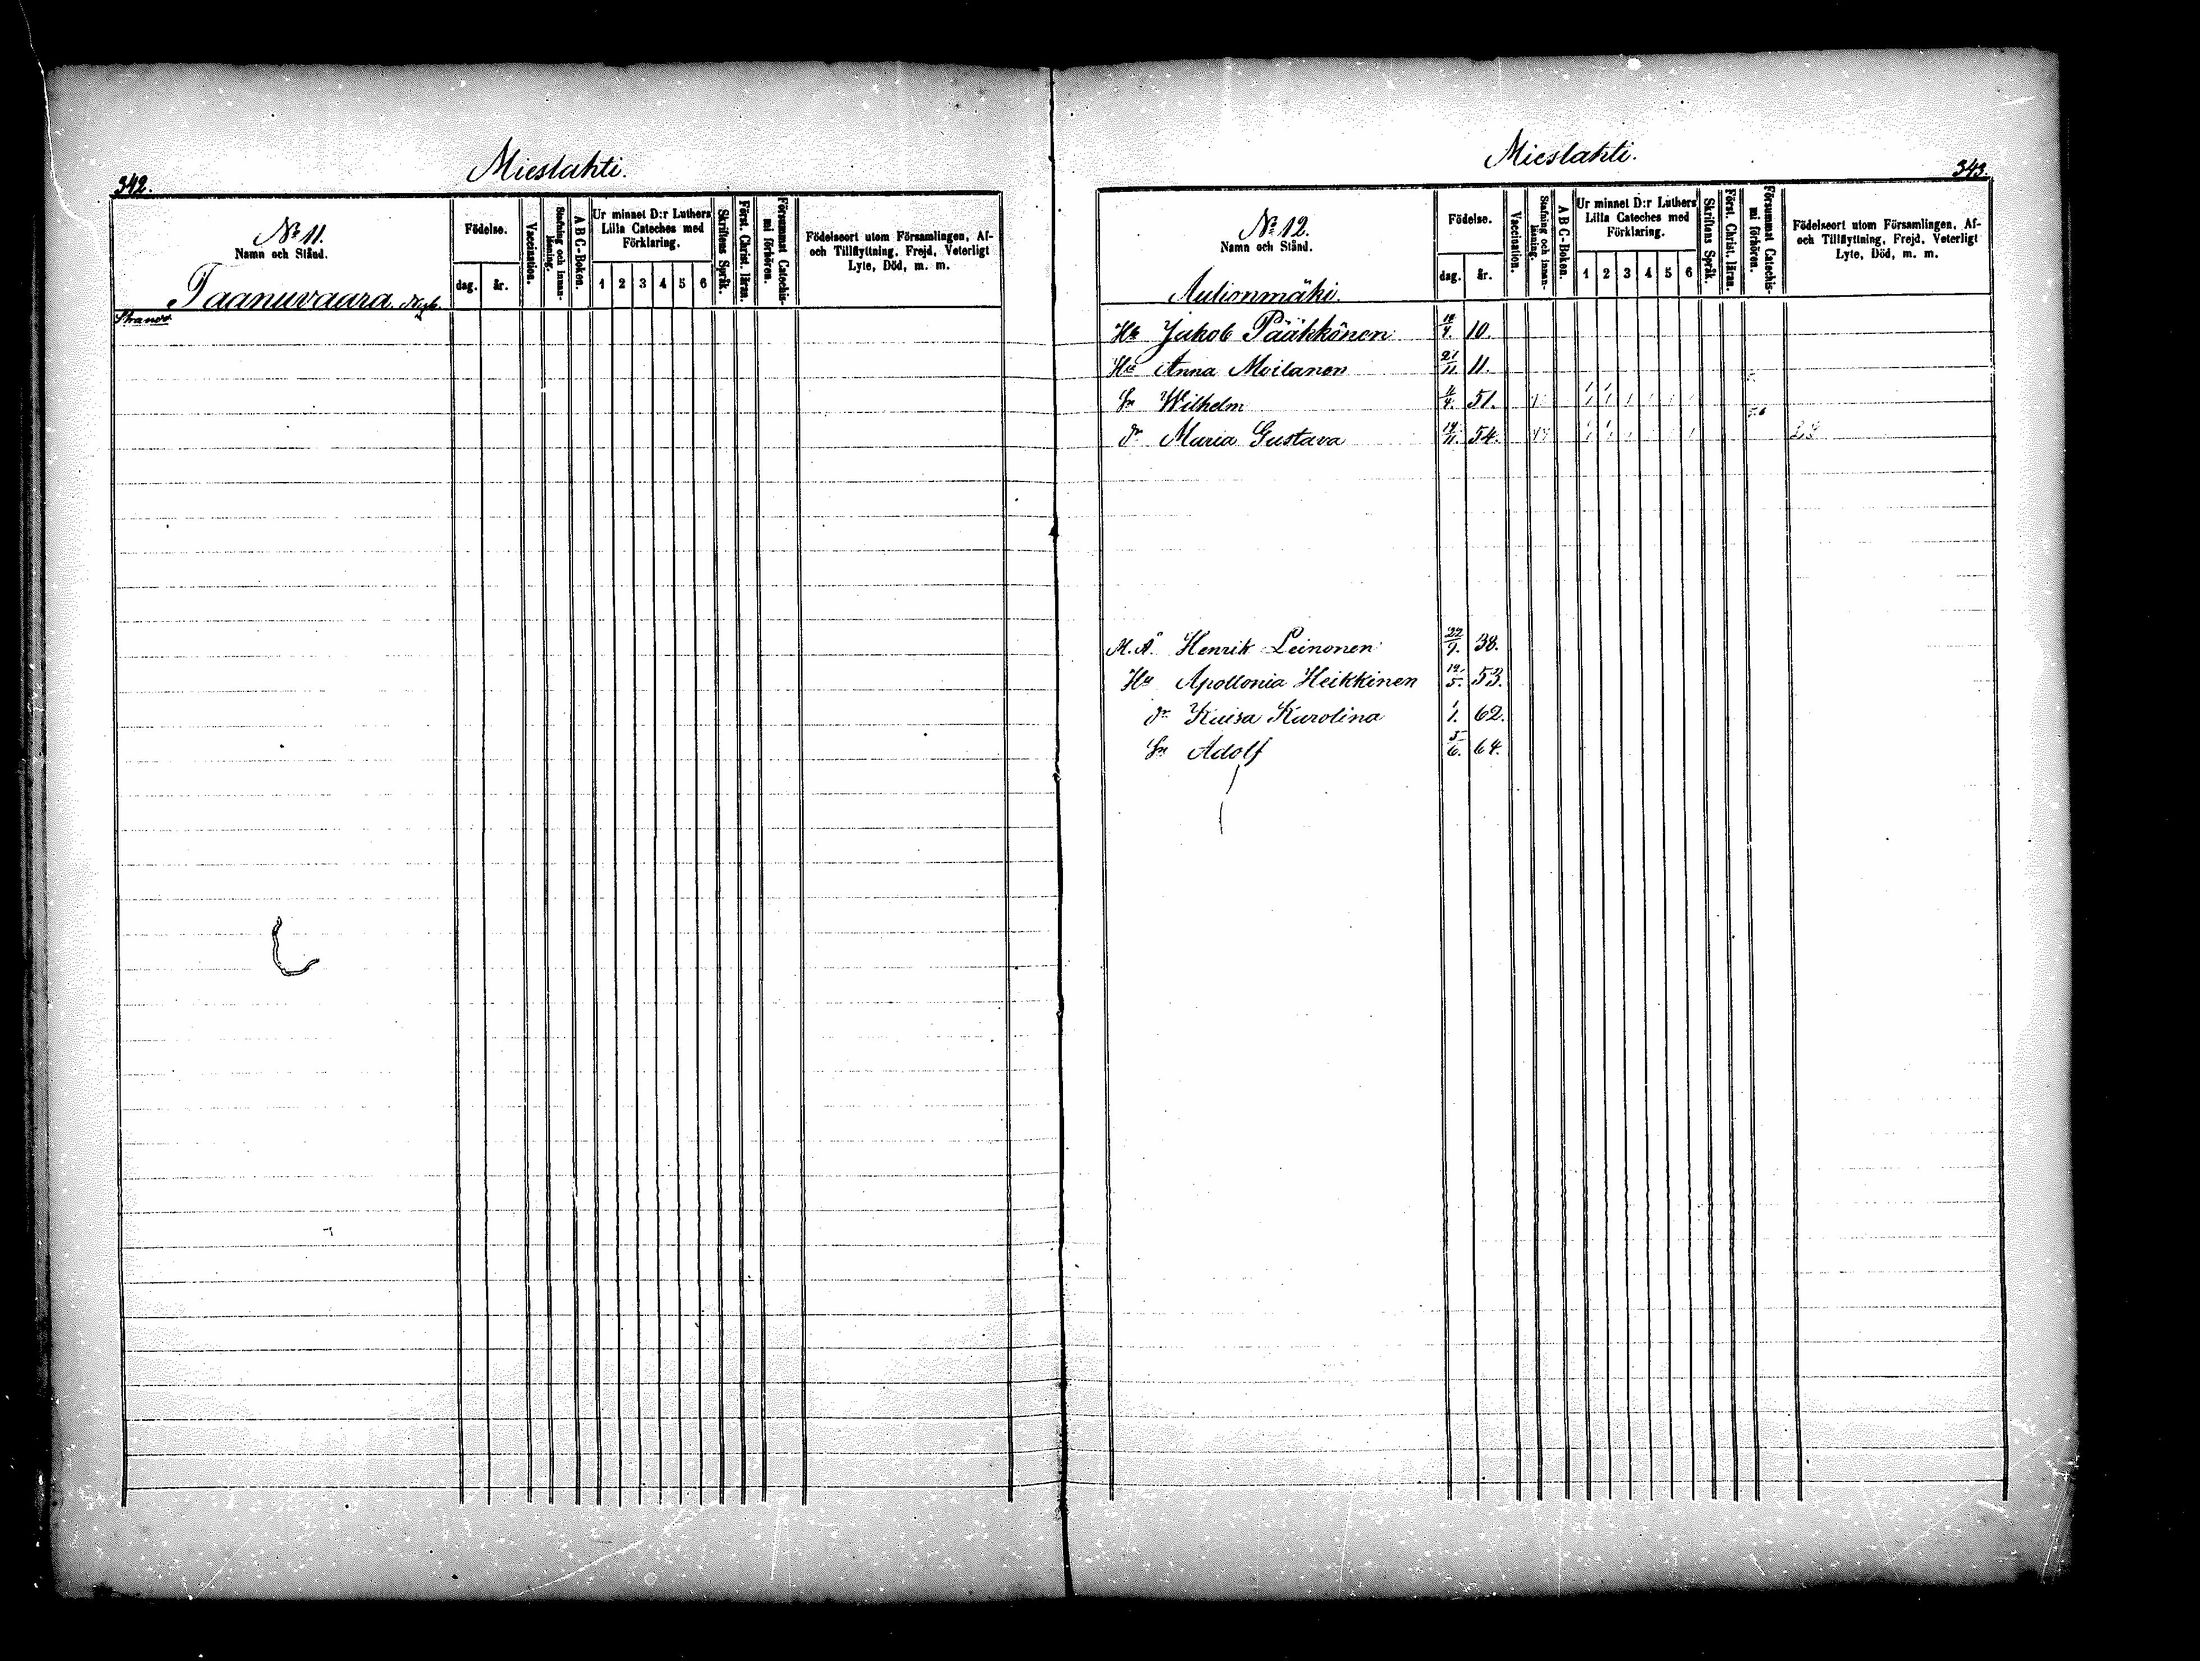 342.
Mieslahti.
No 11.
Namn och Stånd.
Taanuvaara
Födelse.
dag. år.
Vaccination.
Stafning och innanläsning.
A B C-Boken.
Ur minnet D:r Luthers Lilla Cateches med Förklaring.
1 2 3 4 5 6
Skriftens Språk.
Först. Christ. läran.
Försummat Catechismi förhören.
Födelseort utom Församlingen, Af- och Tillflyttning, Frejd, Veterligt Lyte, Död, m. m.
Mieslahti.
343.
No 12.
Namn och Stånd.
Aulionmäki.
Födelse.
dag. år.
Vaccination.
Stafning och innanläsning.
A B C-Boken.
Ur minnet D:r Luthers Lilla Cateches med Förklaring.
1 2 3 4 5 6
Skriftens Språk.
Först. Christ. läran.
Försummat Catechismi förhören.
Födelseort utom Församlingen, Af- och Tillflyttning, Frejd, Veterligt Lyte, Död, m. m.
Jakob Pääkkönen 10.
Hu Anna Moilanen 21/11. 11.
Sn Wilhelm 51.
dr Maria Gustava 54.
Henrik Leinonen 38.
Hu Apollonia Heikkinen 53.
dr Kaisa Karolina 1/1. 62.
Sn Adolf 5/6. 64.